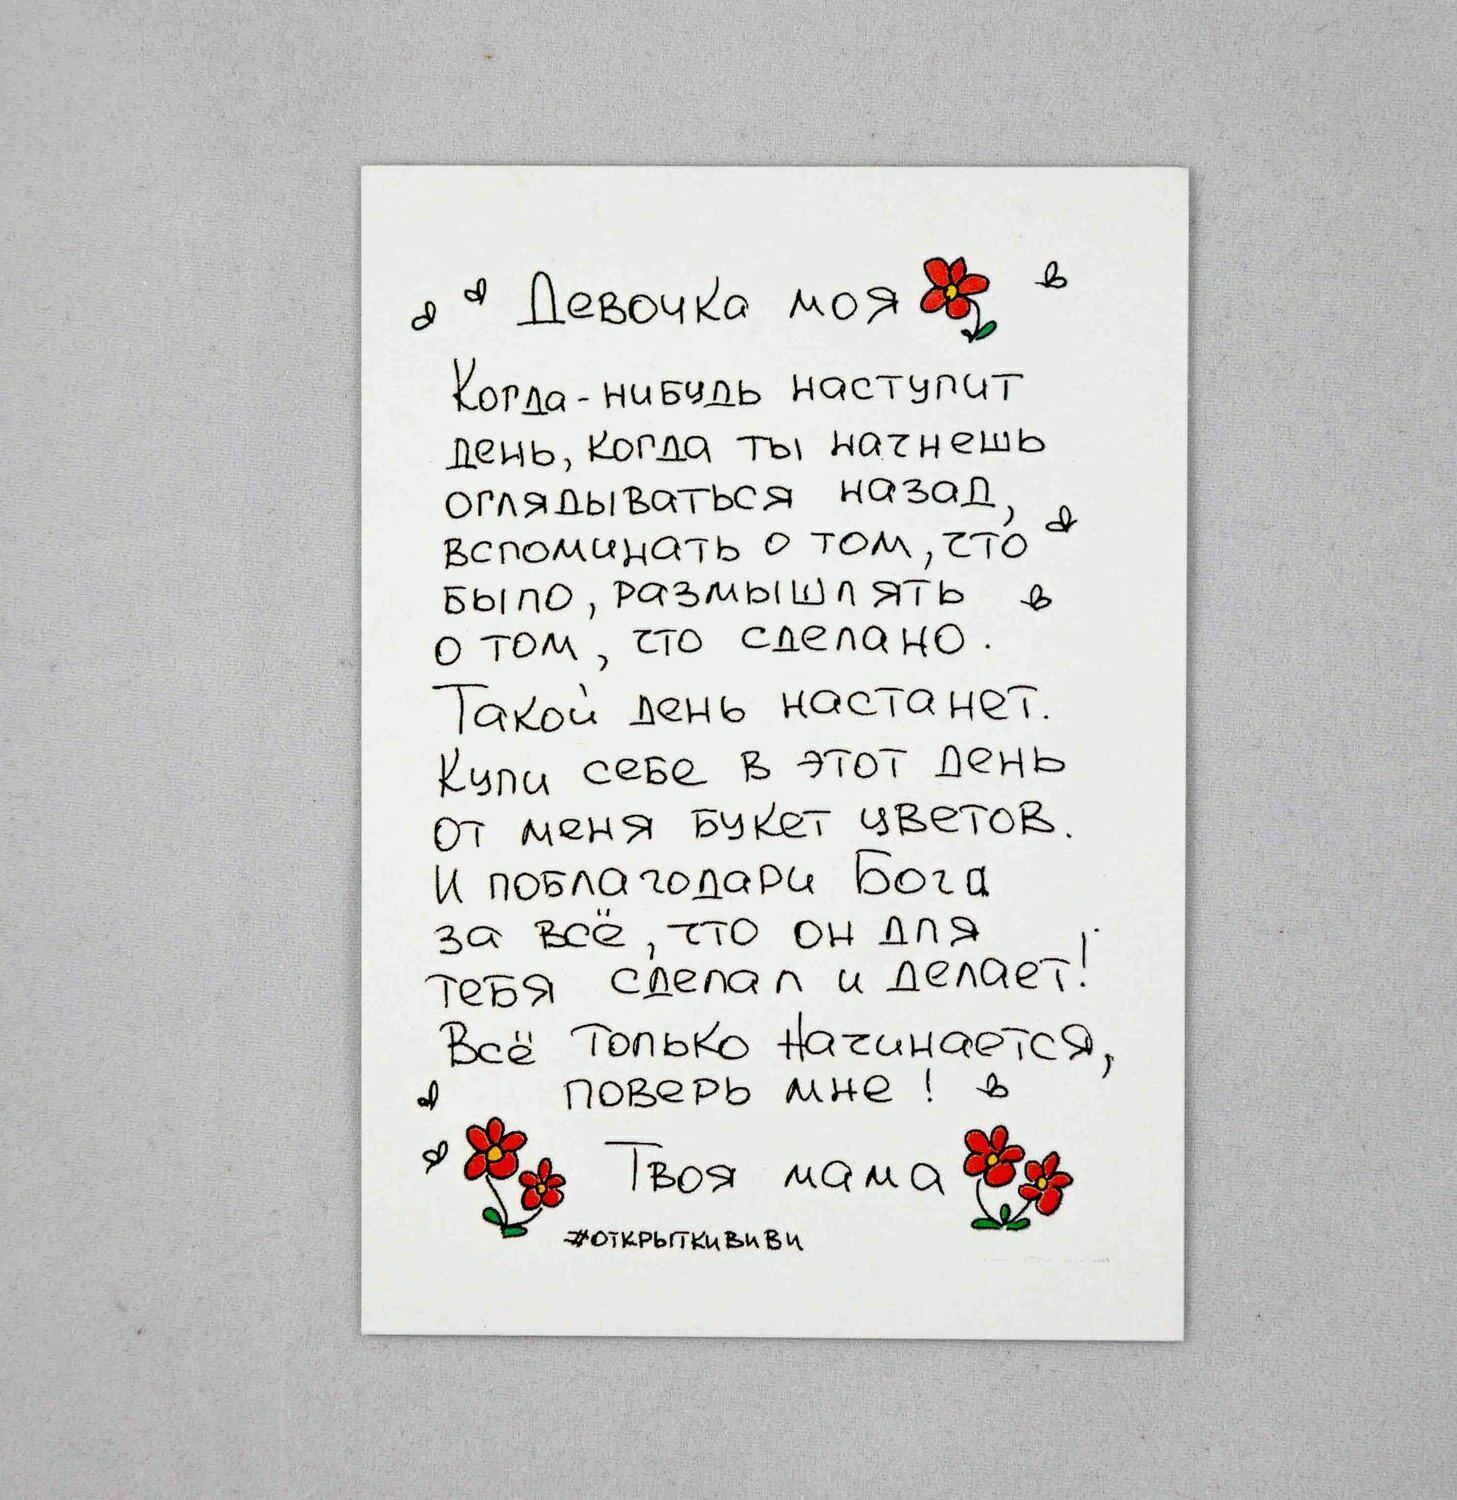 Девочка моя
Когда-нибудь наступит
день, когда ты начнешь
оглядываться назад,
вспоминать о том, что
было, размышлять
о том, что сделано.
Такой день настанет.
Купи себе в этот день
от меня букет цветов.
И поблагодари Бога
за всё, что он для
тебя сделал и делает!
Всё только начинается,
поверь мне!
Твоя мама
#открыткививи